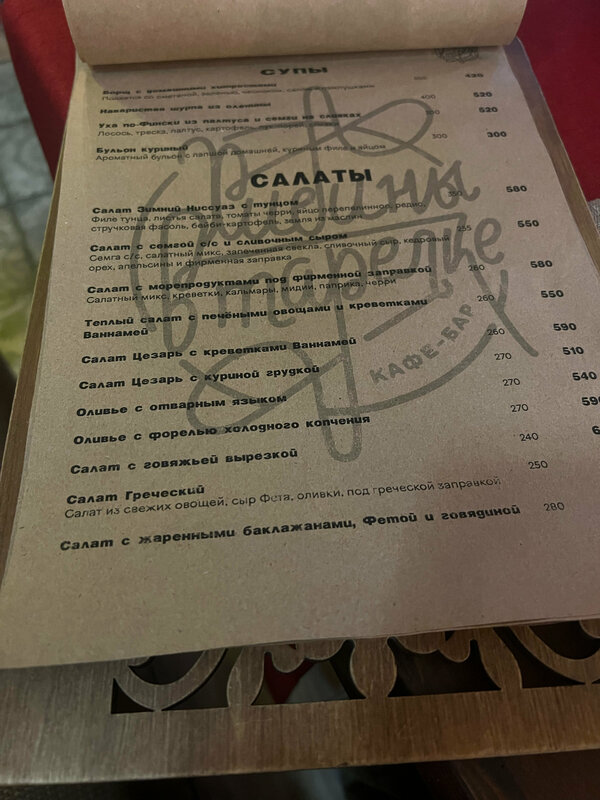 СУПЫ
Борщ с домашними 420
Подается со сметаной, зеленью, чесноком,
Наваристая шурпа из оленины 400 520
Уха по-Фински из палтуса и семги на сливках 520
Лосось, треска, палтус, картофель,
Бульон куриный 300 300
Ароматный бульон с лапшой домашней, куриным филе и яйцом
САЛАТЫ
Салат Зимний Ниссуаз с тунцом 350 580
Филе тунца, листья салата, томаты черри, яйцо перепелиное, редис,
стручковая фасоль, бейби-картофель, земля из маслин
Салат с семгой с/с и сливочным сыром 255 550
Семга с/с, салатный микс, запеченная свекла, сливочный сыр, кедровый
орех, апельсины и фирменная заправка
Салат с морепродуктами под фирменной заправкой 260 580
Салатный микс, креветки, кальмары, мидии, паприка, черри
Теплый салат с печёными овощами и креветками 260 550
Ваннамей
Салат Цезарь с креветками Ваннамей 260 590
Салат Цезарь с куриной грудкой 270 510
Оливье с отварным языком 270 540
Оливье с форелью холодного копчения 270
Салат с говяжьей вырезкой 240
Салат Греческий 250
Салат из свежих овощей, сыр Фета, оливки, под греческой заправкой
Салат с жаренными баклажанами, Фетой и говядиной 280
в тарелке
КАФЕ-БАР